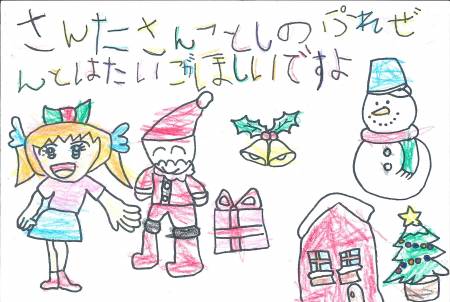 さんたさんことしのぷれぜ
んとはたいごがほしいですよ